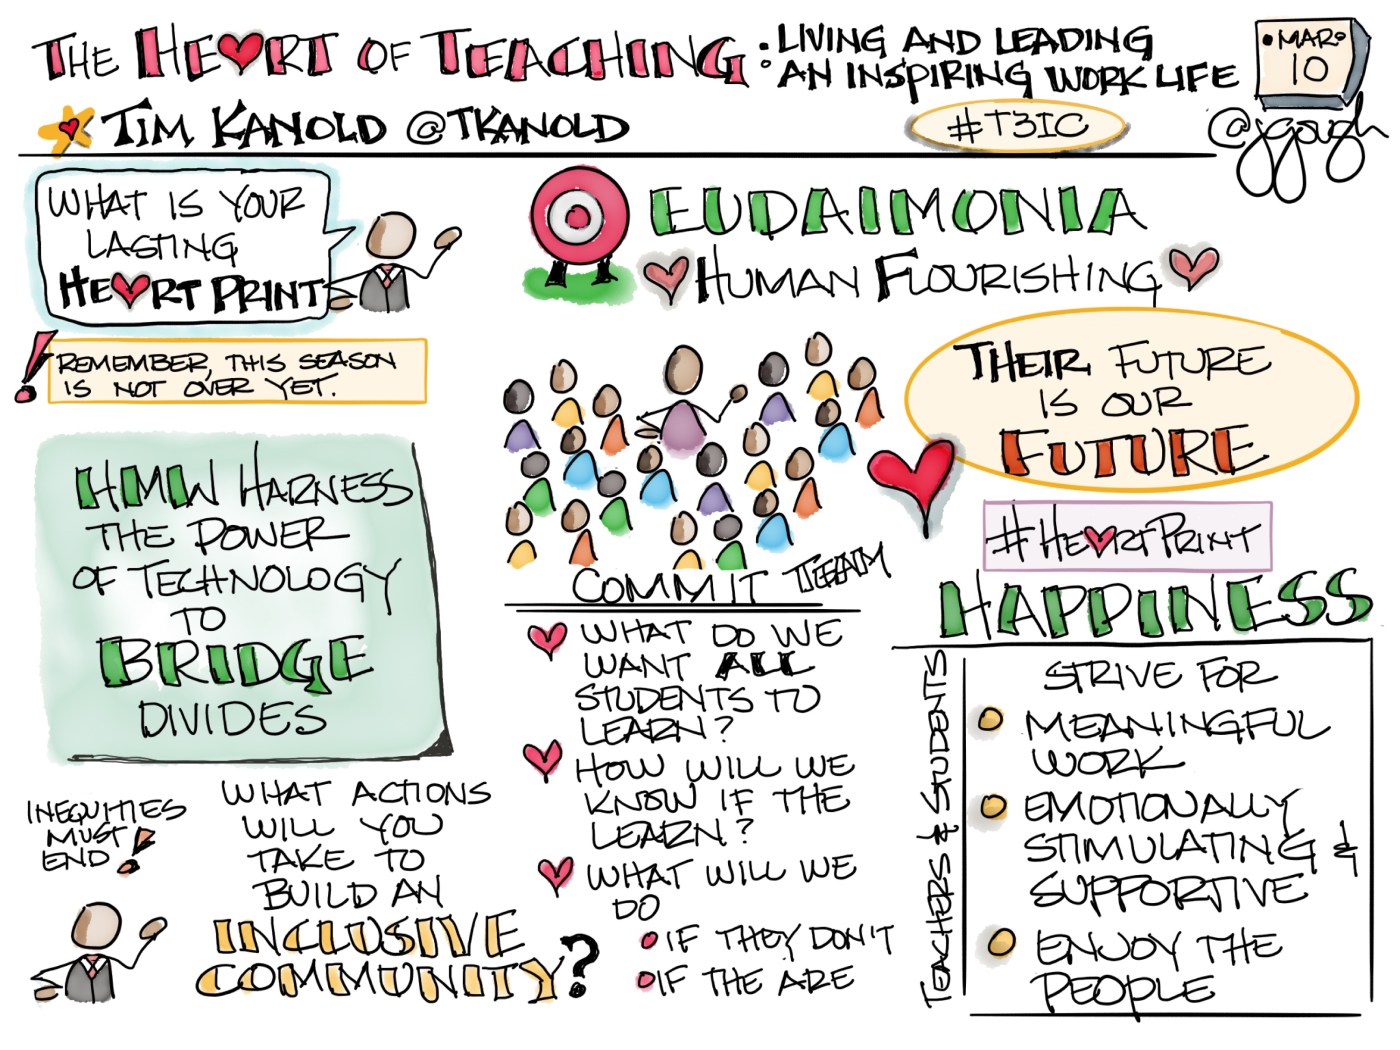 THE HEART OF TEACHING: LIVING AND LEADING
AN INSPIRING WORK LIFE
MAR
10
TIM KANOLD @TKANOLD
#T3IC
@jgough
WHAT IS YOUR
LASTING
HEART PRINT
REMEMBER, THIS SEASON
IS NOT OVER YET.
HMW HARNESS
THE POWER
OF TECHNOLOGY
TO
BRIDGE
DIVIDES
INEQUITIES
MUST
END!
WHAT ACTIONS
WILL YOU
TAKE TO
BUILD AN
INCLUSIVE
COMMUNITY?
EUDAIMONIA
HUMAN FLOURISHING
THEIR FUTURE
IS OUR
FUTURE
#HEARTPRINT
COMMIT TEAM
WHAT DO WE
WANT ALL
STUDENTS TO
LEARN?
HOW WILL WE
KNOW IF THE
LEARN?
WHAT WILL WE
DO
IF THEY DON'T
IF THE ARE
HAPPINESS
TEACHERS & STUDENTS
STRIVE FOR
MEANINGFUL
WORK
EMOTIONALLY
STIMULATING &
SUPPORTIVE
ENJOY THE
PEOPLE